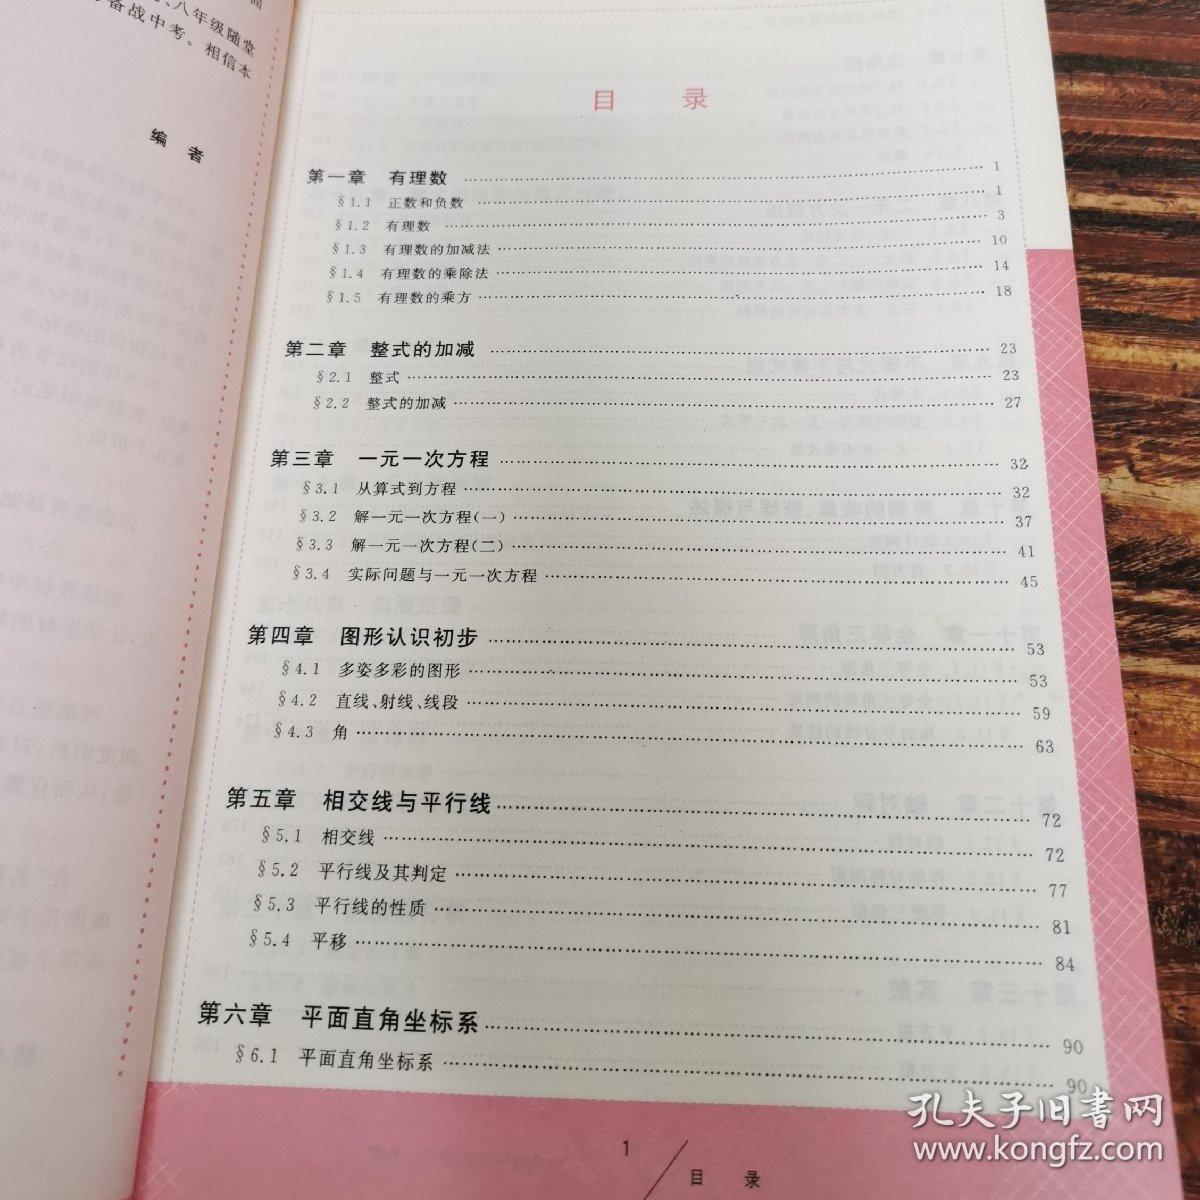 八年级随堂
备战中考。相信本
编 者
目 录
第一章 有理数 1
§1.1 正数和负数 1
§1.2 有理数 3
§1.3 有理数的加减法 10
§1.4 有理数的乘除法 14
§1.5 有理数的乘方 18
第二章 整式的加减 23
§2.1 整式 23
§2.2 整式的加减 27
第三章 一元一次方程 32
§3.1 从算式到方程 32
§3.2 解一元一次方程(一) 37
§3.3 解一元一次方程(二) 41
§3.4 实际问题与一元一次方程 45
第四章 图形认识初步 53
§4.1 多姿多彩的图形 53
§4.2 直线、射线、线段 59
§4.3 角 63
第五章 相交线与平行线 72
§5.1 相交线 72
§5.2 平行线及其判定 77
§5.3 平行线的性质 81
§5.4 平移 84
第六章 平面直角坐标系 90
§6.1 平面直角坐标系 90
1
目 录
孔夫子旧书网
www.kongfz.com